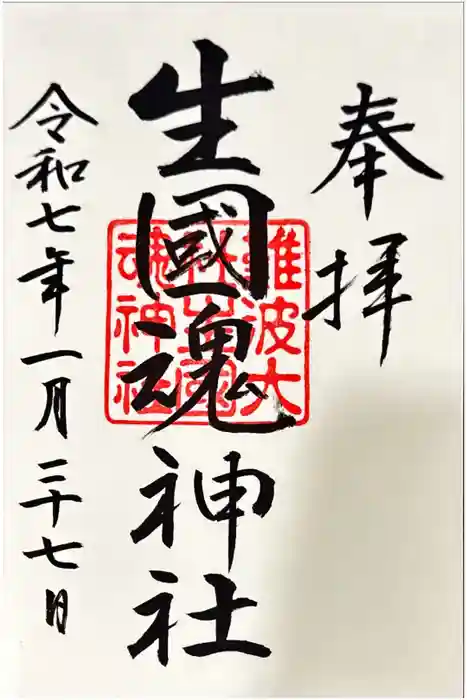 奉拝
生國魂神社
難波大社生國魂神社
令和七年一月二十七日